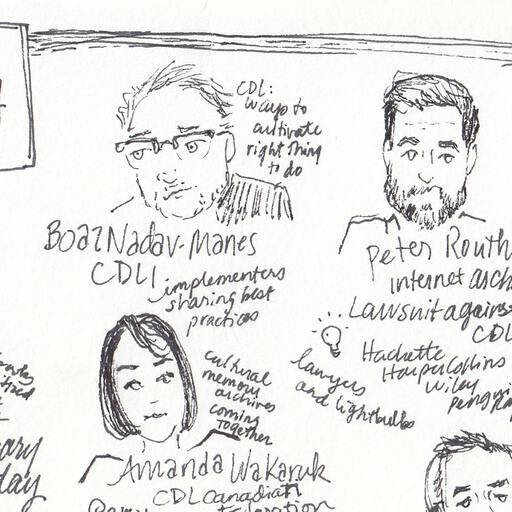 CDL:
ways to
cultivate
right thing
to do
Boaz Nadav-Manes
CDLI
implementers
sharing best
practices
Peter Routh
internet arch
Lawsuit against
CDL
Hachette
HarperCollins
Wiley
Penguin
lawyers
and lightbulbs
cultural
memory
archives
coming
together
Amanda Wakaruk
CDL Canadian
day